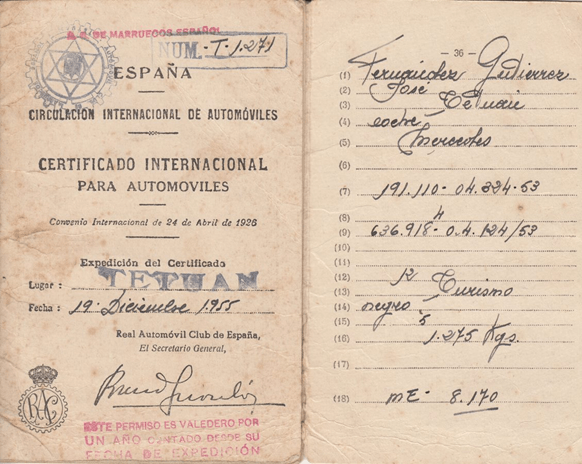 R. C. DE MARRUECOS ESPAÑOL
NUM.-T-1.271
ESPAÑA
CIRCULACION INTERNACIONAL DE AUTOMÓVILES
CERTIFICADO INTERNACIONAL
PARA AUTOMOVILES
Convenio Internacional de 24 de Abril de 1926
Expedición del Certificado
Lugar : TETUAN
Fecha : 19 - Diciembre 1.955
Real Automóvil Club de España,
El Secretario General,
ESTE PERMISO ES VALEDERO POR
UN AÑO CONTADO DESDE SU
FECHA DE EXPEDICIÓN
- 36 -
(1) Fernández Gutierrez
(2) José
(3) Tetuán
(4) coche
(5) Mercedes
(6)
(7) 191.110-04.324-53
(8) 4
(9) 636.918-0.4.124/53
(10)
(11)
(12)
(13) Turismo
(14) negro
(15) 5
(16) 1.275 Kgs.
(17)
(18) ME- 8.170